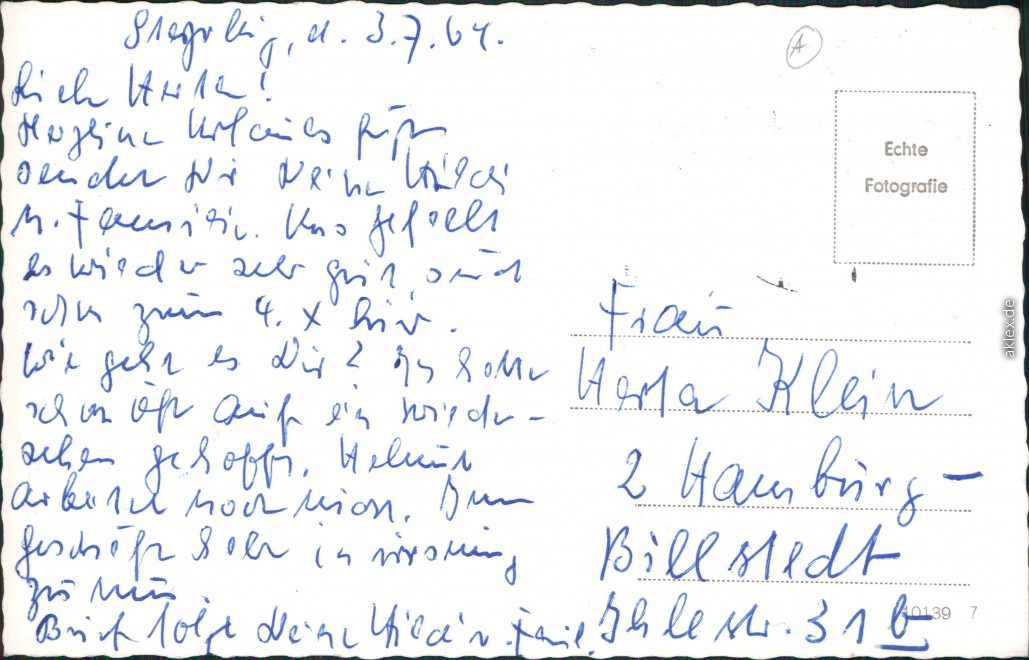 d. 3.7.64.
Herta!
Herzliche Urlaubs
sendet Dir Deine
u. Familie. Uns gefällt
es wieder sehr gut, sind
schon zum 4. X hier.
Wie geht es Dir? Ich hatte
schon oft auf ein Wieder-
sehen gehofft. Helmut
arbeitet noch nicht. Im
Geschäft habe ich
zu tun.
Brief folgt Deine
A
Echte
Fotografie
Frau
Herta Klein
2 Hamburg-
Billstedt
Ihlestr. 31 b
10139 7
aklex.de